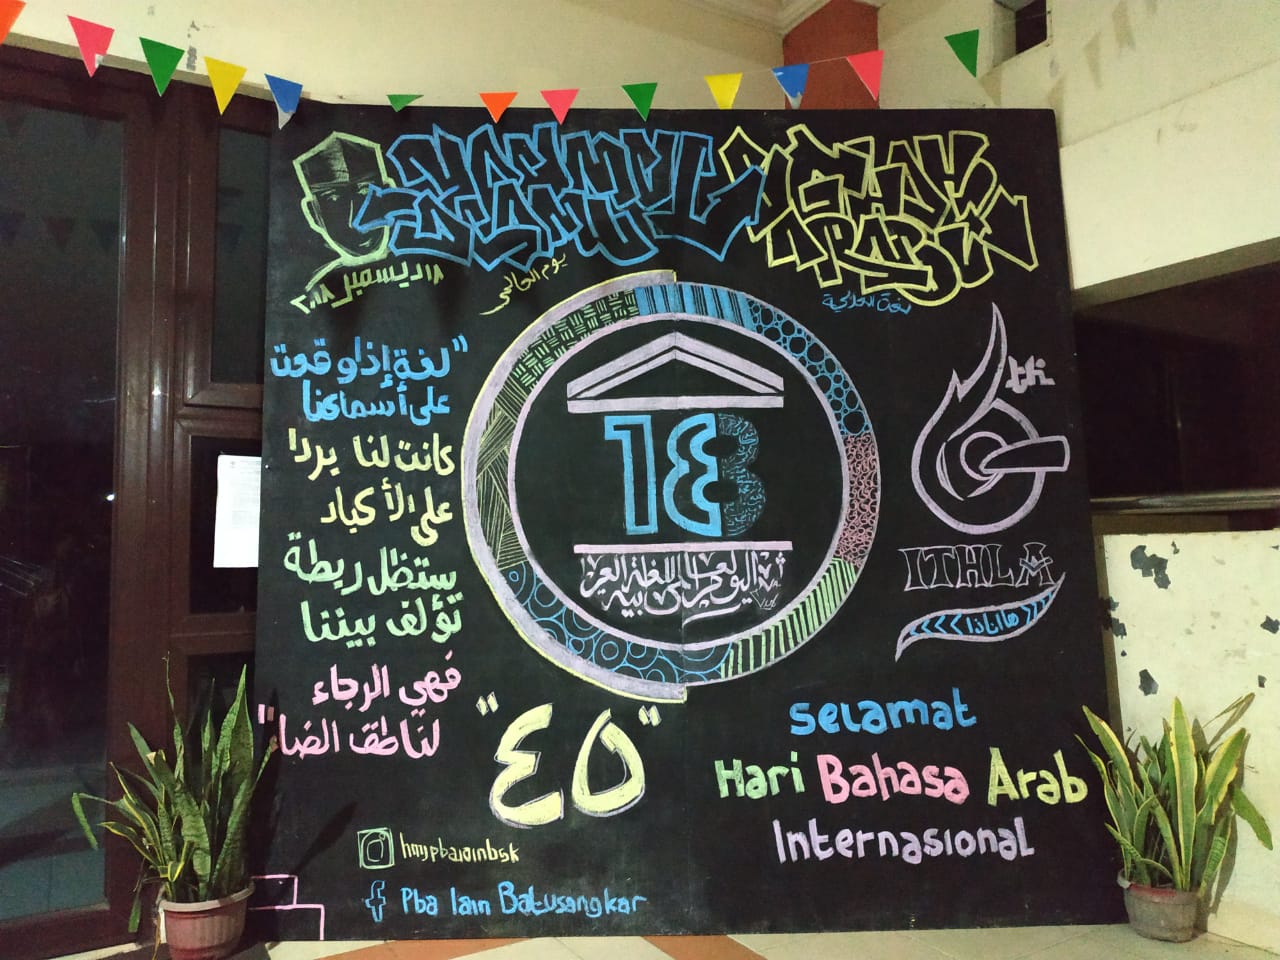 YAUMUL
'ALAMIL
LUGHAH
ARAB
١٨ ديسمبر ٢٠١٨
يوم العالمي
"لغة إذا وقعت
على أسماعنا
كانت لنا بردا
على الأكباد
ستظل ربطة
تؤلف بيننا
فهي الرجاء
لناطق الضا"
اليوم العالمي للغة العربية
6th
ITHLA
ها انا ذا
"٤٥"
Selamat
Hari Bahasa Arab
Internasional
hmjpbaiainbsk
Pba Iain Batusangkar